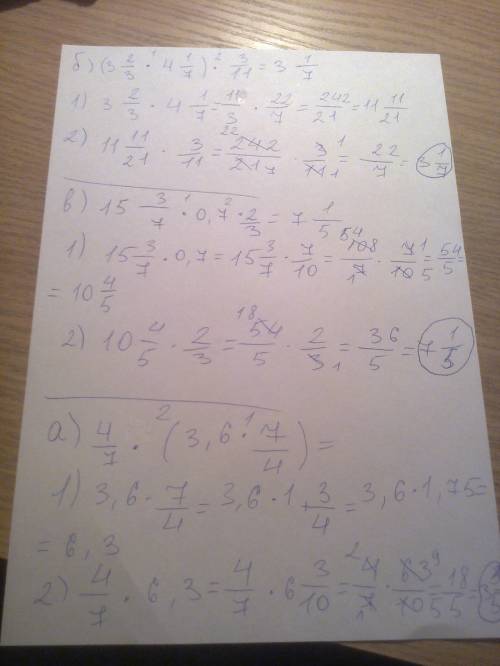 б) (3 2/3 · 4 1/7) · 3/11 = 3 1/7
1) 3 2/3 · 4 1/7 = 11/3 · 22/7 = 242/21 = 11 11/21
2) 11 11/21 · 3/11 = 242/21 · 3/11 = 22/7 = 3 1/7
в) 15 3/7 · 0,7 · 2/3 = 7 1/5
1) 15 3/7 · 0,7 = 15 3/7 · 7/10 = 108/7 · 7/10 = 54/5 =
= 10 4/5
2) 10 4/5 · 2/3 = 54/5 · 2/3 = 36/5 = 7 1/5
а) 4/7 · (3,6 · 7/4) =
1) 3,6 · 7/4 = 3,6 · 1 3/4 = 3,6 · 1,75 =
= 6,3
2) 4/7 · 6,3 = 4/7 · 6 3/10 = 4/7 · 63/10 = 18/5 = 3